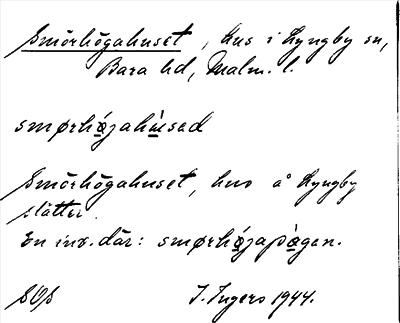 Smörhögahuset, hus i Lyngby sn,
Bara hd, Malm. l.
smørhø̱jahu̱sad
Smörhögahuset, hus å Lyngby
slätter.
En inv. där: smørhø̱japå̱gan.
SOS J. Ingers 1944.